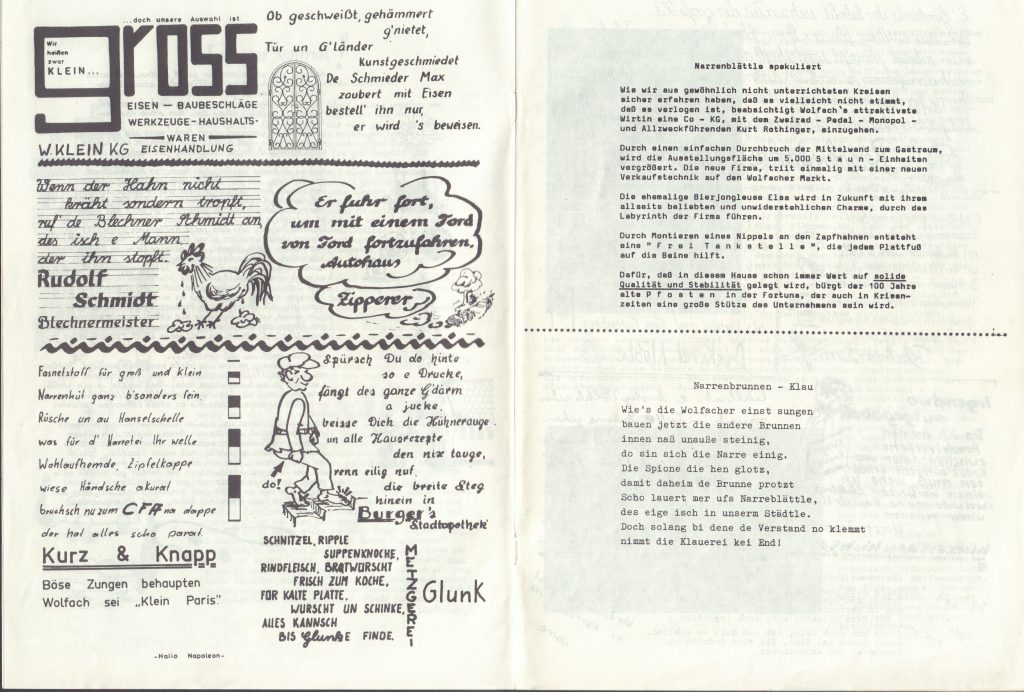 ...doch unsere Auswahl ist
Wir
heißen
zwar
KLEIN...
gross
EISEN — BAUBESCHLÄGE
WERKZEUGE-HAUSHALTS-
WAREN
W. KLEIN KG EISENHANDLUNG
Ob geschweißt, gehämmert
g'nietet,
Tür un G'länder
Kunstgeschmiedet
De Schmieder Max
zaubert mit Eisen
bestell' ihn nur,
er wird 's beweisen.
Wenn der Hahn nicht
kräht sondern tropft,
ruf de Blechner Schmidt an,
des isch e Mann
der ihn stopft.
Rudolf
Schmidt
Blechnermeister
Er fuhr fort,
um mit einem Ford
von Ford fortzufahren,
Autohaus
Zipperer
Fasnetstoff für groß und klein
Narrenhüt ganz b'sonders fein,
Rüsche un au Hanselschelle
was für d' Narretei Ihr welle
Wohlaufhemde, Zipfelkappe
wiese Händsche akurat
bruchsch nu zum CFA na dappe
der hot alles scho parat.
Kurz & Knapp
Böse Zungen behaupten
Wolfach sei „Klein Paris".
-Hallo Napoleon-
Spürsch Du do hinte
so e Drucke,
fängt des ganze G'därm
a jucke,
beisse Dich die Hühnerauge
un alle Hausrezepte
den nix tauge,
renn eilig nuf
die breite Steg
hinein in
Burger's
Stadtapotheke
do!
SCHNITZEL, RIPPLE
SUPPENKNOCHE,
RINDFLEISCH, BROTWÜRSCHT
FRISCH ZUM KOCHE,
FÜR KALTE PLATTE,
WURSCHT UN SCHINKE,
ALLES KANNSCH
BIS GlunkE FINDE.
METZGEREI
Glunk
Narrenblättle spekuliert
Wie wir aus gewöhnlich nicht unterrichteten Kreisen
sicher erfahren haben, daß es vielleicht nicht stimmt,
daß es verlogen ist, beabsichtigt Wolfach's attraktivste
Wirtin eine Co - KG, mit dem Zweirad - Pedal - Monopol -
und Allzweckführenden Kurt Rothinger, einzugehen.
Durch einen einfachen Durchbruch der Mittelwand zum Gastraum,
wird die Ausstellungsfläche um 5.000 S t a u n - Einheiten
vergrößert. Die neue Firma, tritt einmalig mit einer neuen
Verkaufstechnik auf den Wolfacher Markt.
Die ehemalige Bierjongleuse Elsa wird in Zukunft mit ihrem
allseits beliebten und unwiderstehlichen Charme, durch das
Labyrinth der Firma führen.
Durch Montieren eines Nippels an den Zapfhahnen entsteht
eine " F r e i T a n k s t e l l e ", die jedem Plattfuß
auf die Beine hilft.
Dafür, daß in diesem Hause schon immer Wert auf solide
Qualität und Stabilität gelegt wird, bürgt der 100 Jahre
alte P f o s t e n in der Fortuna, der auch in Krisen-
zeiten eine große Stütze des Unternehmens sein wird.
Narrenbrunnen - Klau
Wie's die Wolfacher einst sungen
bauen jetzt die andere Brunnen
innen naß unauße steinig,
do sin sich die Narre einig.
Die Spione die hen glotz,
damit daheim de Brunne protzt
Scho lauert mer ufs Narreblättle,
des eige isch in unserm Städtle.
Doch solang bi dene de Verstand no klemmt
nimmt die Klauerei kei End!